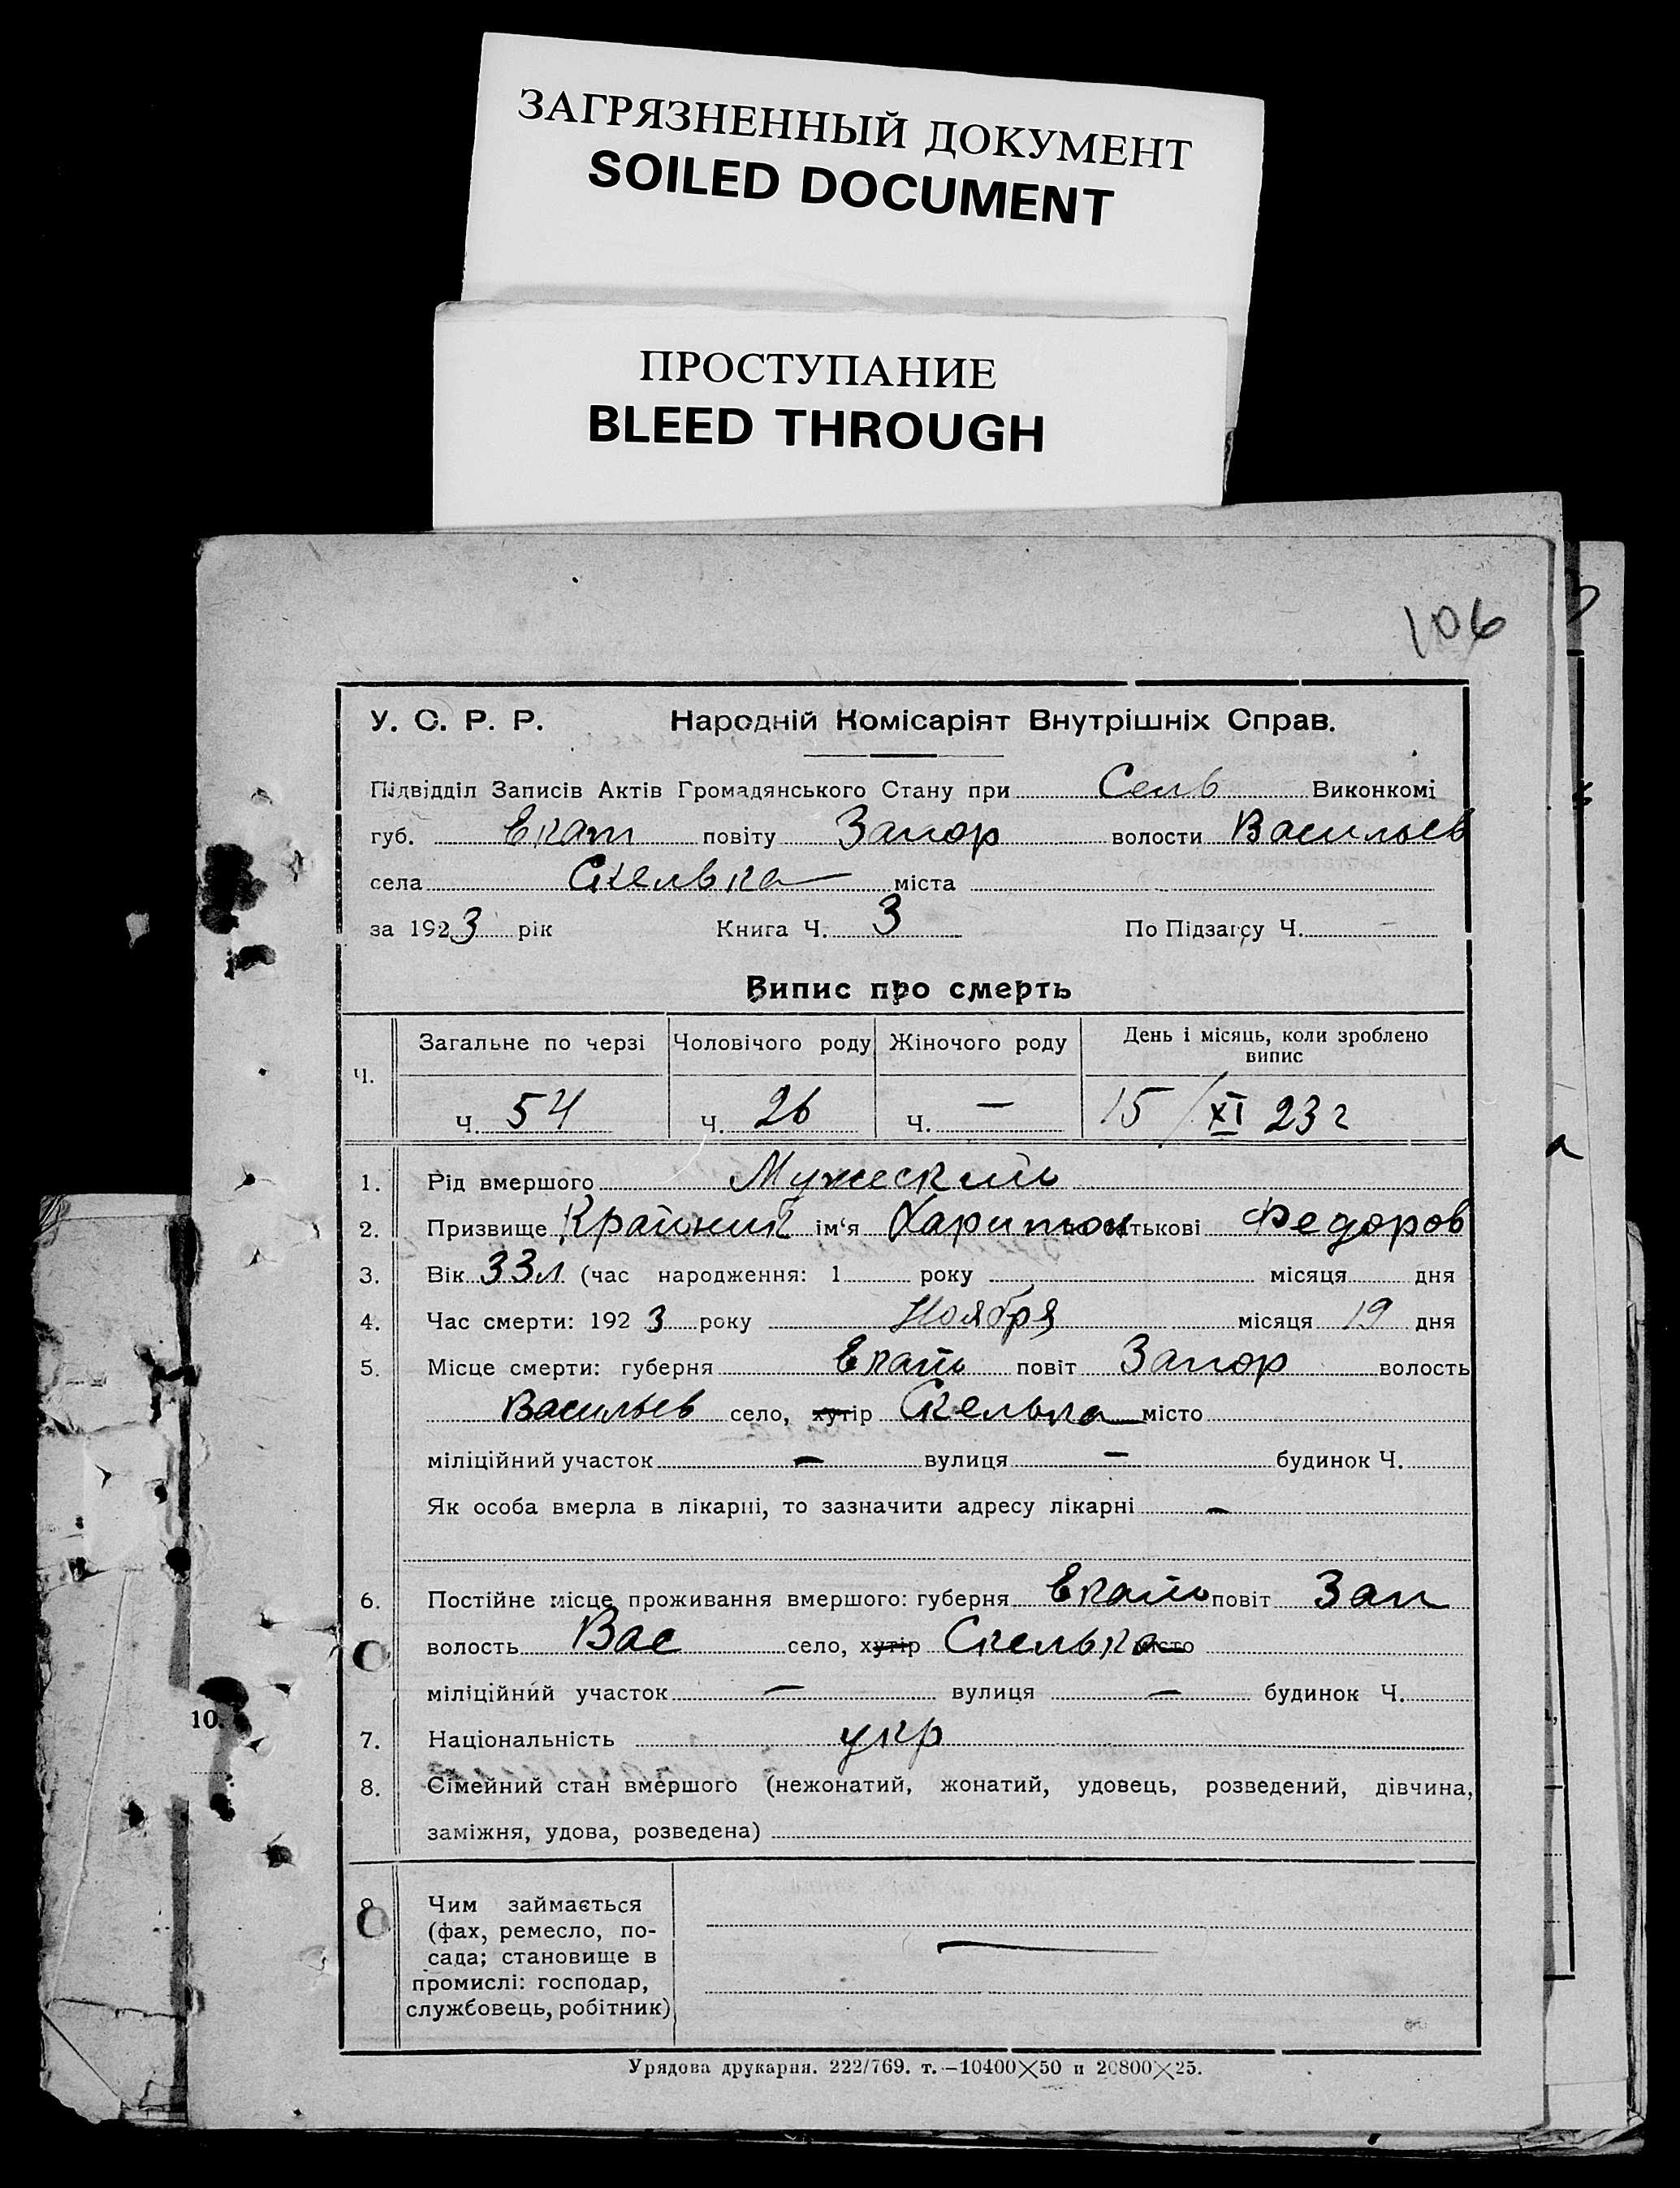 ЗАГРЯЗНЕННЫЙ ДОКУМЕНТ
SOILED DOCUMENT
ПРОСТУПАНИЕ
BLEED THROUGH
106
У. С. Р. Р. Народній Комісаріят Внутрішніх Справ.
Підвідділ Записів Актів Громадянського Стану при Сель Виконкомі
губ. Екат повіту Запор волости Васильев
села Скелька міста
за 1923 рік Книга Ч. 3 По Підзагсу Ч. -
Випис про смерть
Ч. Загальне по черзі Чоловічого роду Жіночого роду День і місяць, коли зроблено випис
Ч. 54 Ч. 26 Ч. — 15/XI 23 г
1. Рід вмершого Мужеский
2. Призвище Крайний ім‘я Харитон по батькові Федоров
3. Вік 33 л (час народження: 1 року місяця дня
4. Час смерти: 1923 року Ноября місяця 19 дня
5. Місце смерти: губерня Екат повіт Запор волость
Васильев село, хутір Скелька місто
міліційний участок — вулиця — будинок Ч.
Як особа вмерла в лікарні, то зазначити адресу лікарні —
6. Постійне місце проживання вмершого: губерня Екат повіт Зап
волость Вас село, хутір Скелька місто
міліційний участок — вулиця — будинок Ч.
7. Національність укр
8. Сімейний стан вмершого (нежонатий, жонатий, удовець, розведений, дівчина,
заміжня, удова, розведена)
10.
9. Чим займається
(фах, ремесло, по-
сада; становище в —
промислі: господар,
службовець, робітник)
Урядова друкарня. 222/769. т.—10400×50 и 20800×25.